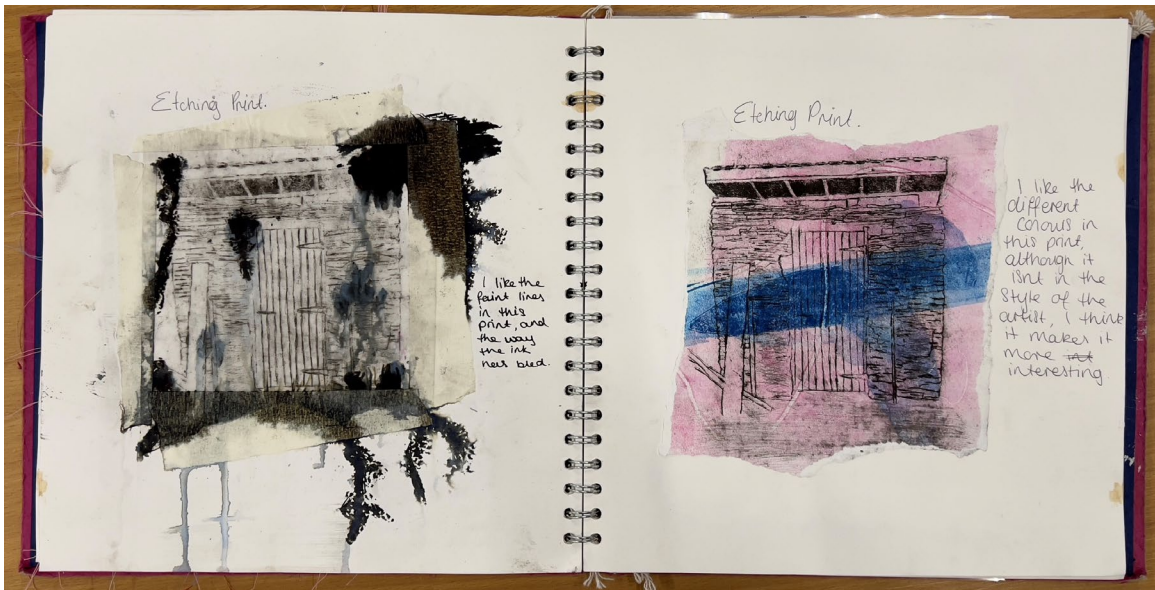 Etching Print.
I like the
faint lines
in this
print, and
the way
the ink
has bled.
Etching Print.
I like the
different
colours in
this print,
although it
isnt in the
style of the
artist, I think
it makes it
more
interesting